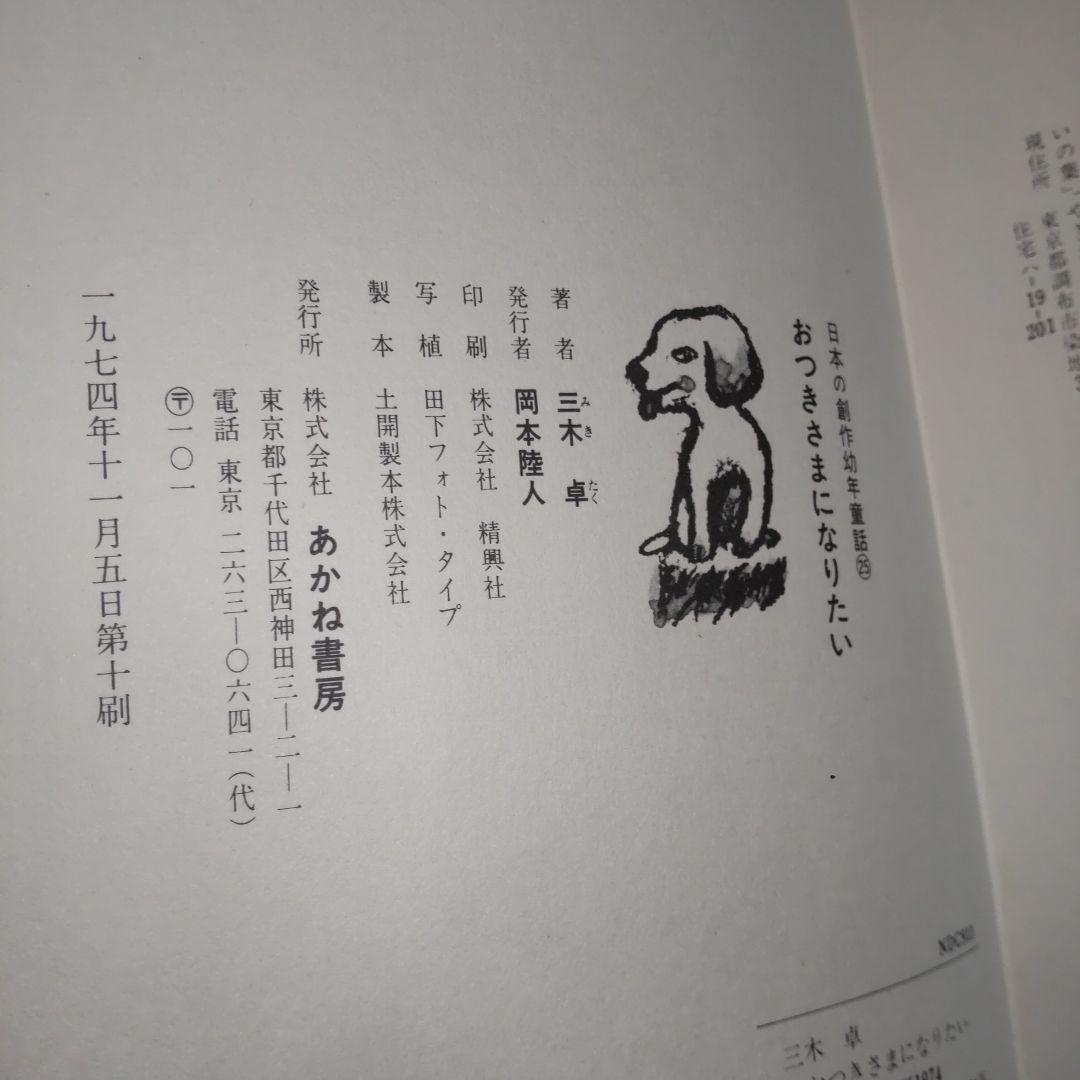 現住所 東京都調布市染地
住宅ハ-19-201
日本の創作幼年童話㉕
おつきさまになりたい
著者 三木 卓
みき たく
発行者 岡本陸人
印刷 株式会社 精興社
写植 田下フォト・タイプ
製本 土開製本株式会社
発行所 株式会社 あかね書房
東京都千代田区西神田三—二—一
電話 東京 二六三—〇六四一(代)
〒一〇一
一九七四年十一月五日第十刷
三木 卓
おつきさまになりたい
1974